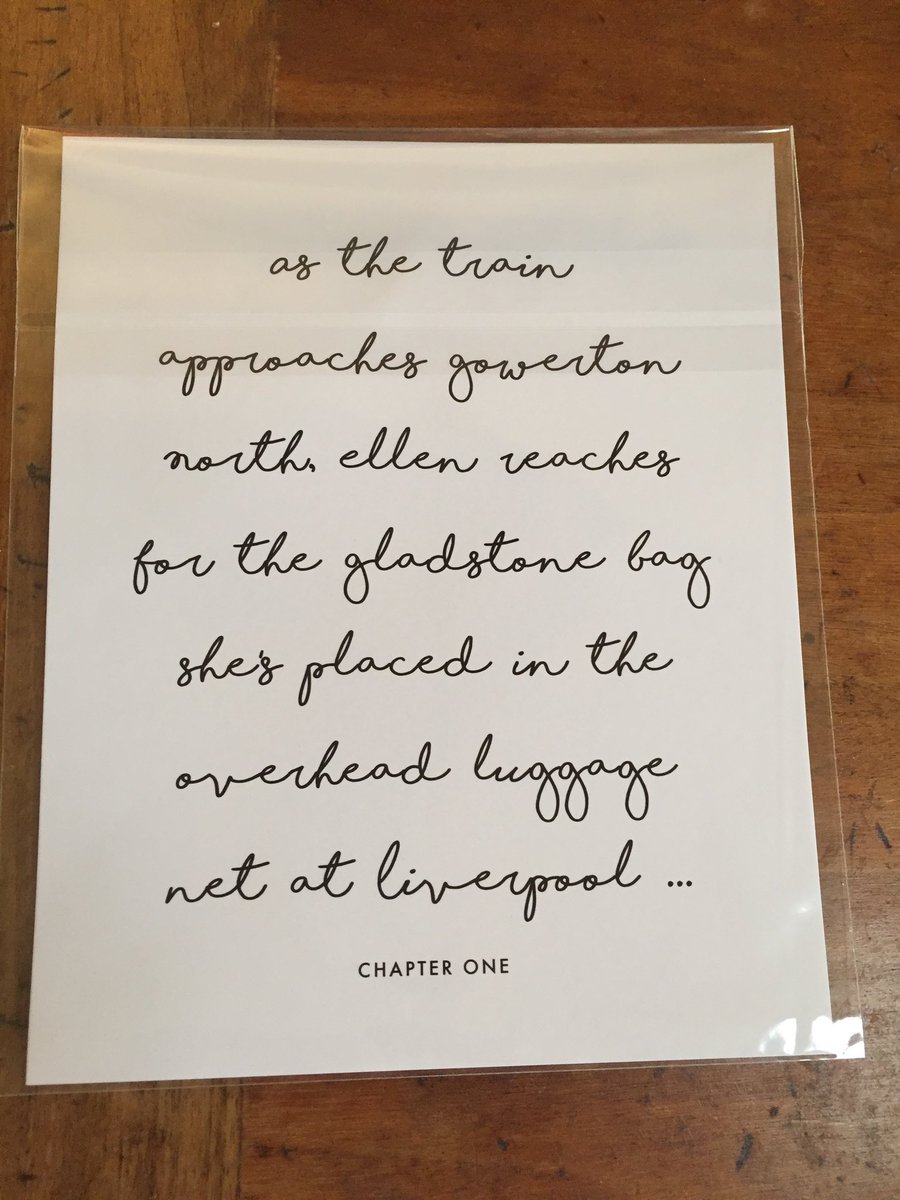 as the train
approaches gowerton
north, ellen reaches
for the gladstone bag
she's placed in the
overhead luggage
net at liverpool ...
CHAPTER ONE